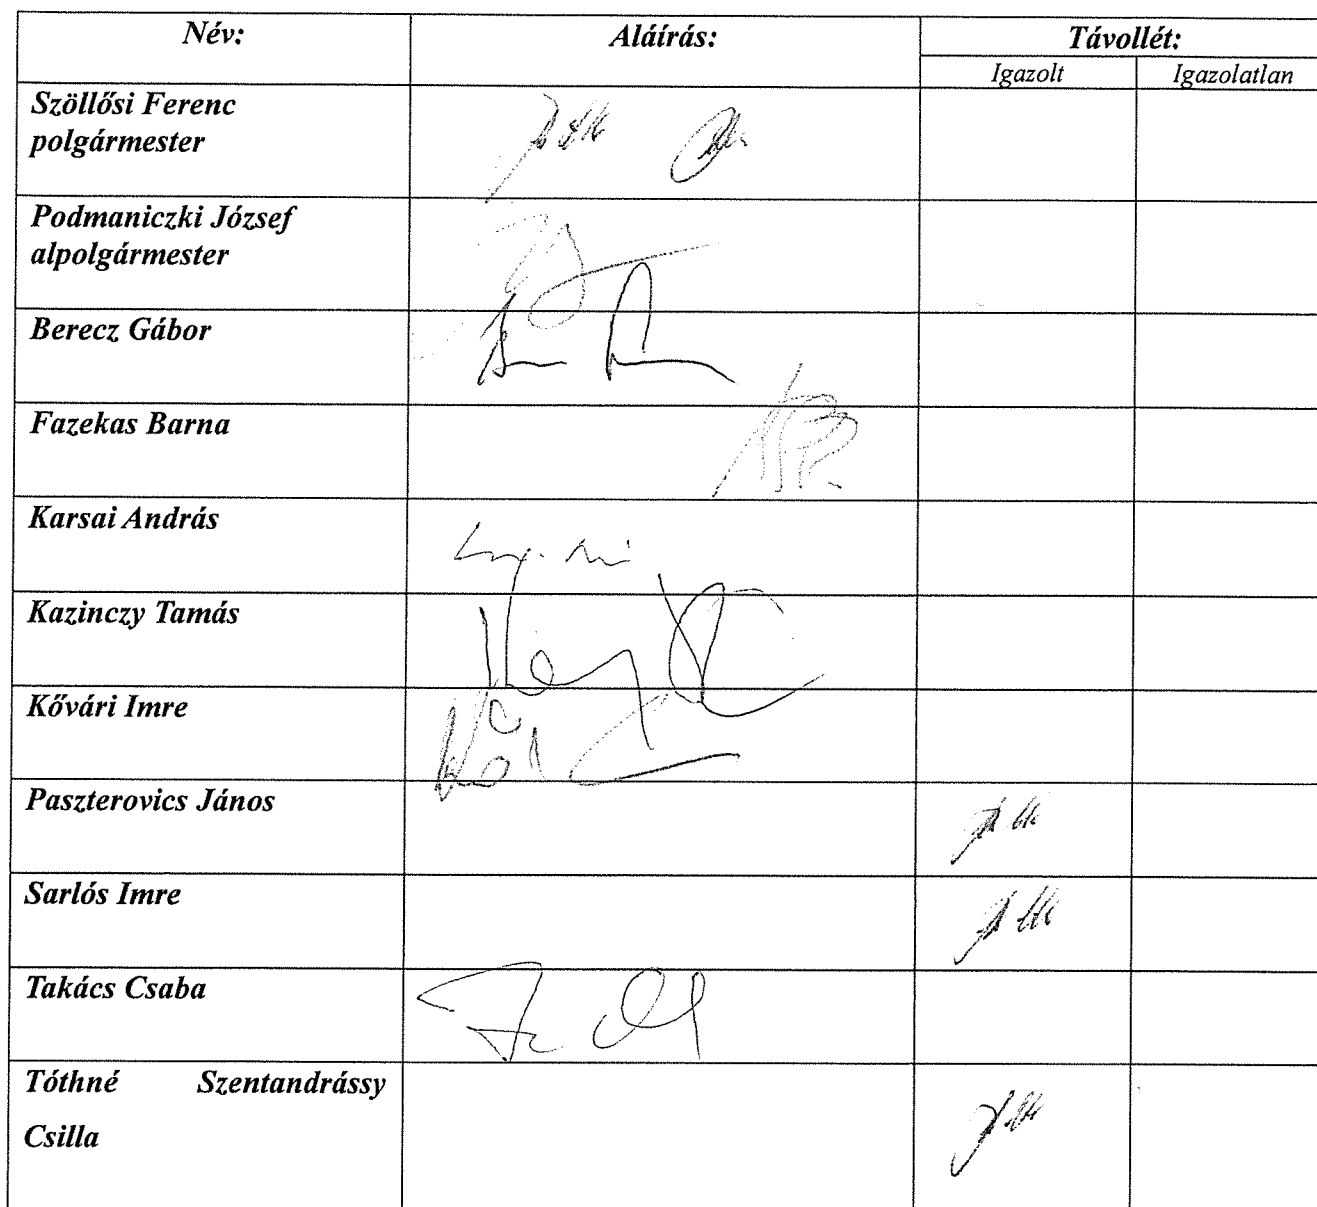 Név: Aláírás: Távollét:
Igazolt Igazolatlan
Szöllősi Ferenc
polgármester
Podmaniczki József
alpolgármester
Berecz Gábor
Fazekas Barna
Karsai András
Kazinczy Tamás
Kővári Imre
Paszterovics János
Sarlós Imre
Takács Csaba
Tóthné Szentandrássy
Csilla